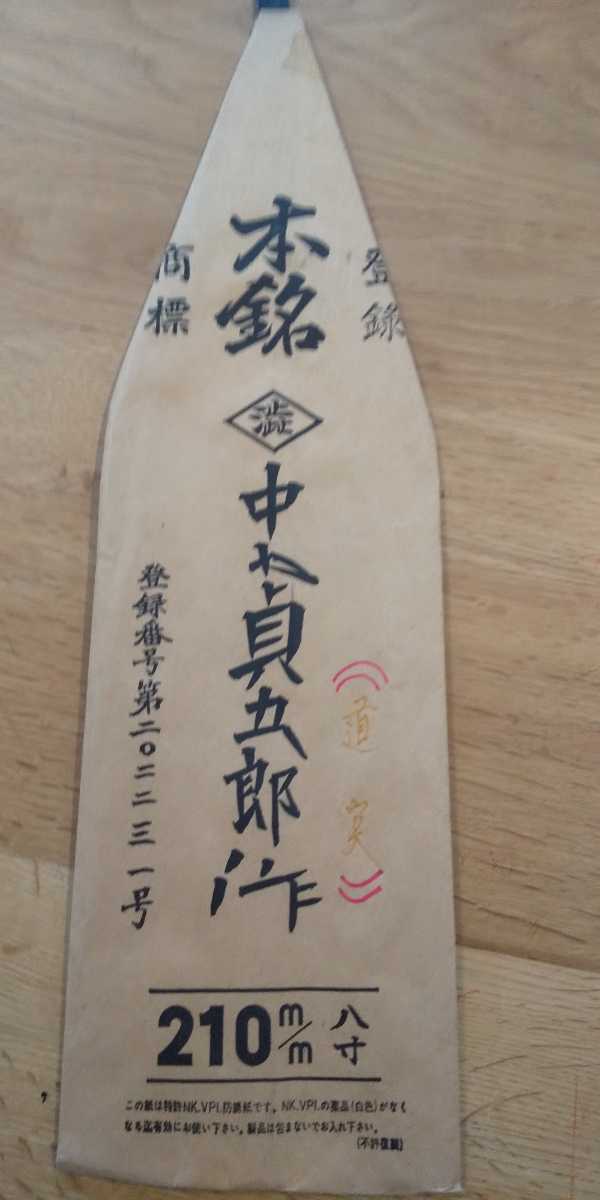 登録
商標
本銘
澁
中や貞五郎作
(道
)
登録番号第二〇二二三一号
210m/m 八寸
この紙は特許NK.VPI.防錆紙です。NK.VPI.の薬品(白色)がなく
なる迄有効にお使い下さい。製品は包まないでお入れ下さい。
(不許復製)